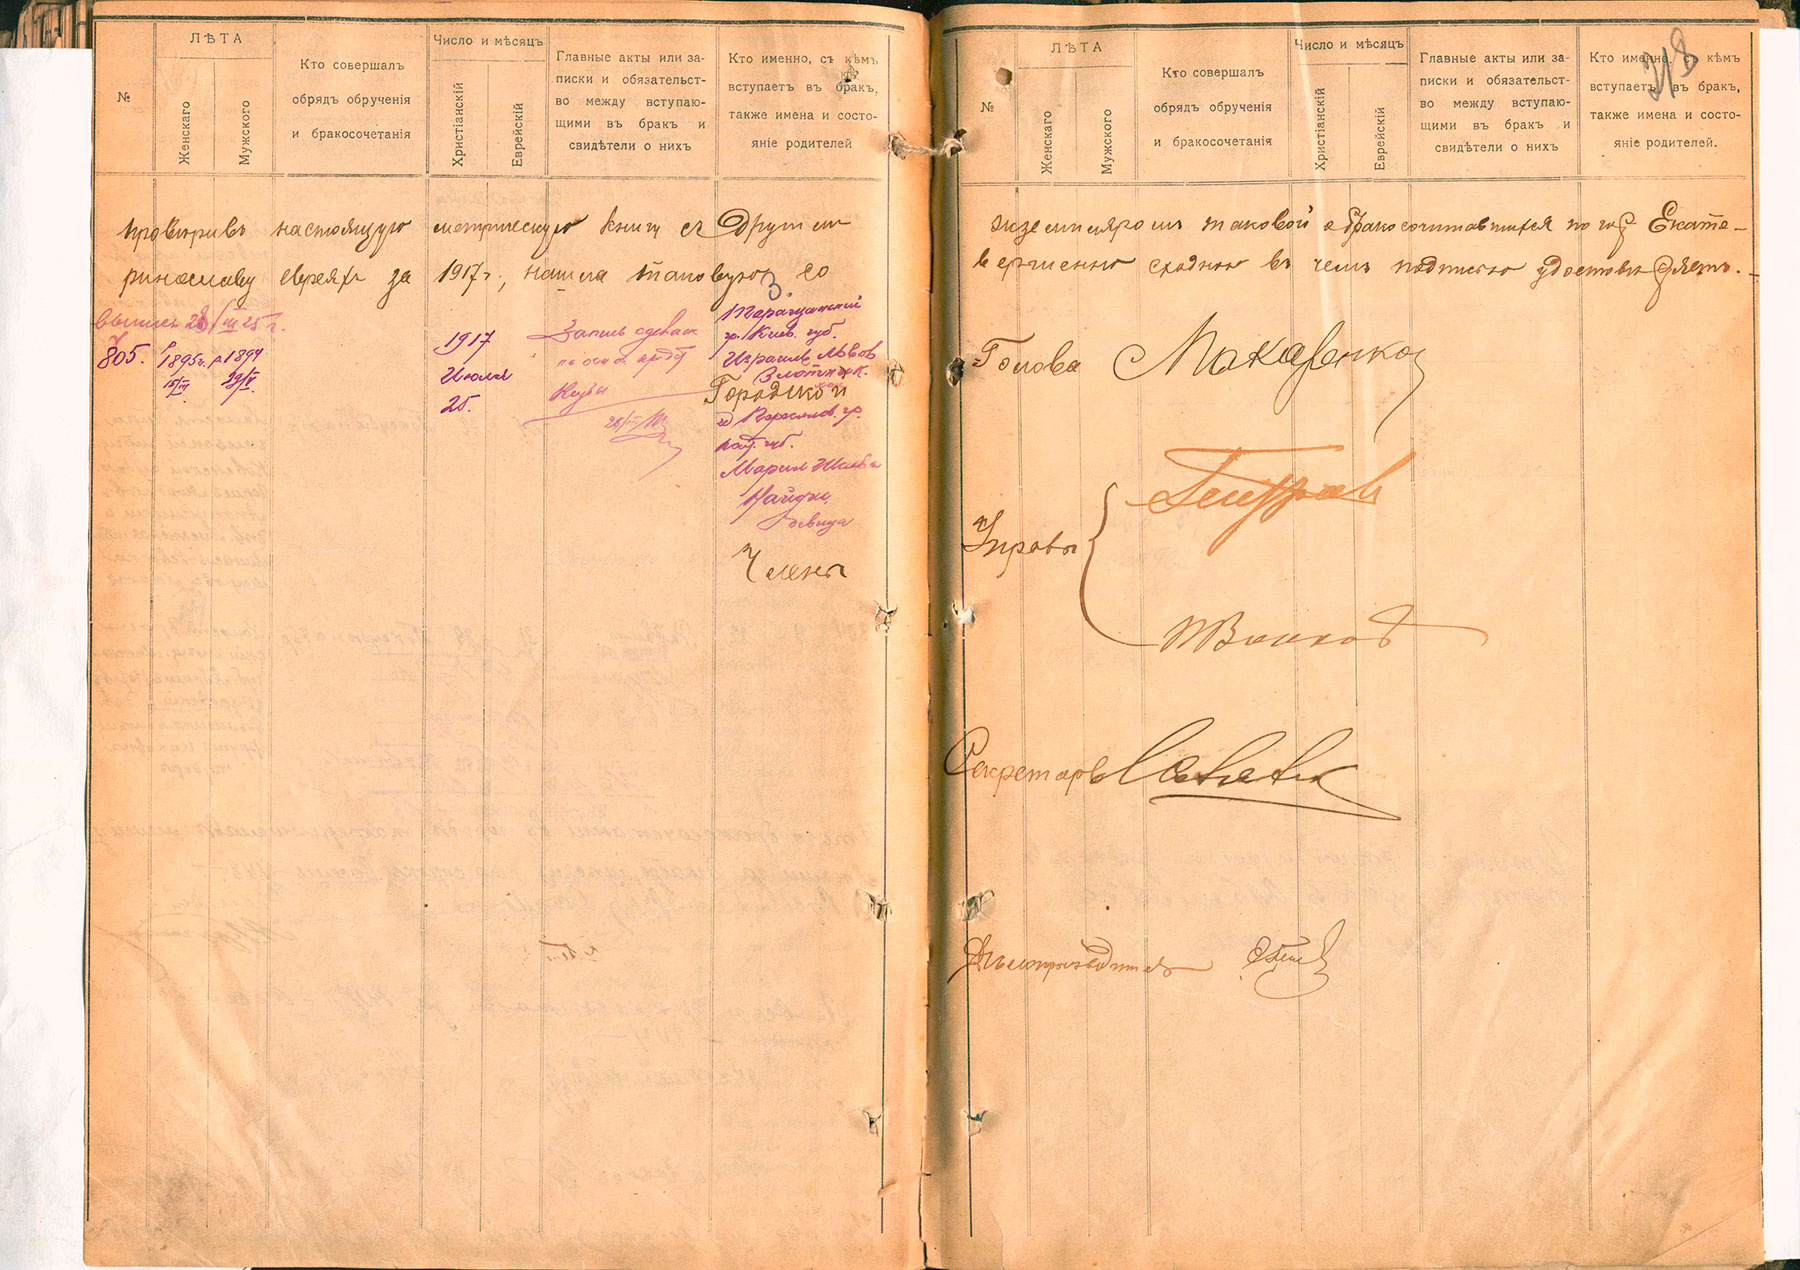 №
ЛѢТА
Женскаго
Мужского
Кто совершалъ
обрядъ обрученія
и бракосочетанія
Число и мѣсяцъ
Христіанскій
Еврейскій
Главные акты или за-
писки и обязательст-
во между вступаю-
щими въ бракъ и
свидѣтели о нихъ
Кто именно, съ кѣмъ
вступаетъ въ бракъ,
также имена и состо-
яніе родителей
Провѣривъ настоящую метрическую книгу съ другим
ринославу евреях за 1917 г., нашла таковую со
выпись 28/III 25 г.
805.
р. 1895 г.
15/III
р. 1894
29/V
1917
Июля
25.
Запись сделана
на основ.
28/III
3.
Таращанский
гр. Киев. губ.
Израиль Львов
Злотник.
Городской
Переяслов. гр.
Пол. губ.
Мария
Найда
девица
Члены
№
ЛѢТА
Женскаго
Мужского
Кто совершалъ
обрядъ обрученія
и бракосочетанія
Число и мѣсяцъ
Христіанскій
Еврейскій
Главные акты или за-
писки и обязательст-
во между вступаю-
щими въ бракъ и
свидѣтели о нихъ
Кто именно, съ кѣмъ
вступаетъ въ бракъ,
также имена и состо-
яніе родителей.
218
экземпляромъ таковой о бракосочитавшихся по гор Екате-
вершенно сходною въ чемъ подписью удостовѣряетъ.
Голова Макаренко
Управы
Секретарь
Дѣлопроизводитель